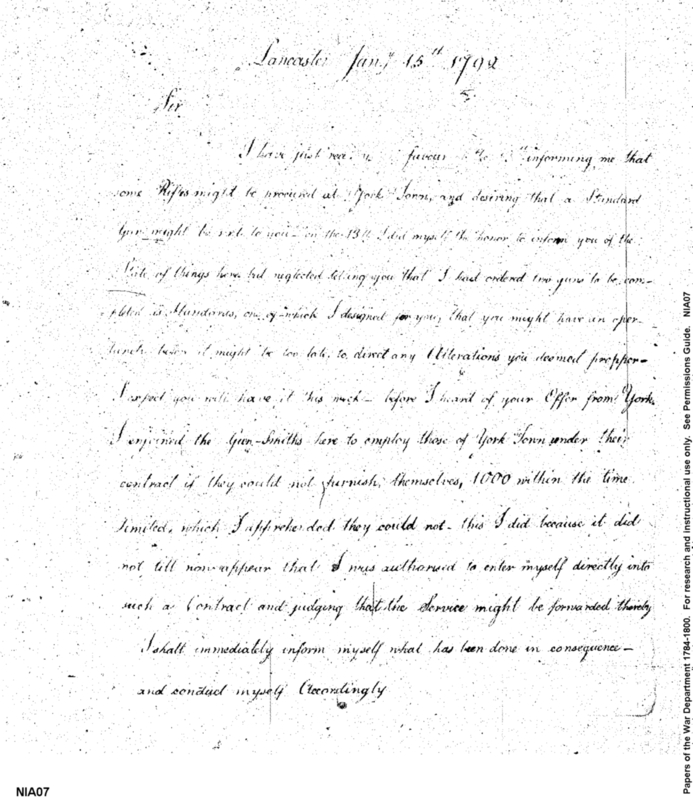 Lancaster Jany 15th 1792
Sir
I have just favour informing me that
some Rifles might be procured at York Town, and desiring that a Standard
Gun might be sent to you - on the 13th I did myself the honor to inform you of the
State of things here, but neglected telling you that I had ordered two guns to be com-
pleted as Standards, one of which I designed for you, that you might have an oper-
tunity before it might be too late, to direct any Alterations you deemed propper -
I expect you will have it this week - before I heard of your Offer from York
I enjoined the Gun-Smiths here to employ those of York Town under their
contract if they could not furnish, themselves, 1000 within the time
limited, which I apprehended they could not - this I did because it did
not till now appear that I was authorised to enter myself directly into
such a Contract and judging that the Service might be forwarded thereby
I shall immediately inform myself what has been done in consequence -
and conduct myself Accordingly
NIA07
Papers of the War Department 1784-1800. For research and instructional use only. See Permissions Guide. NIA07